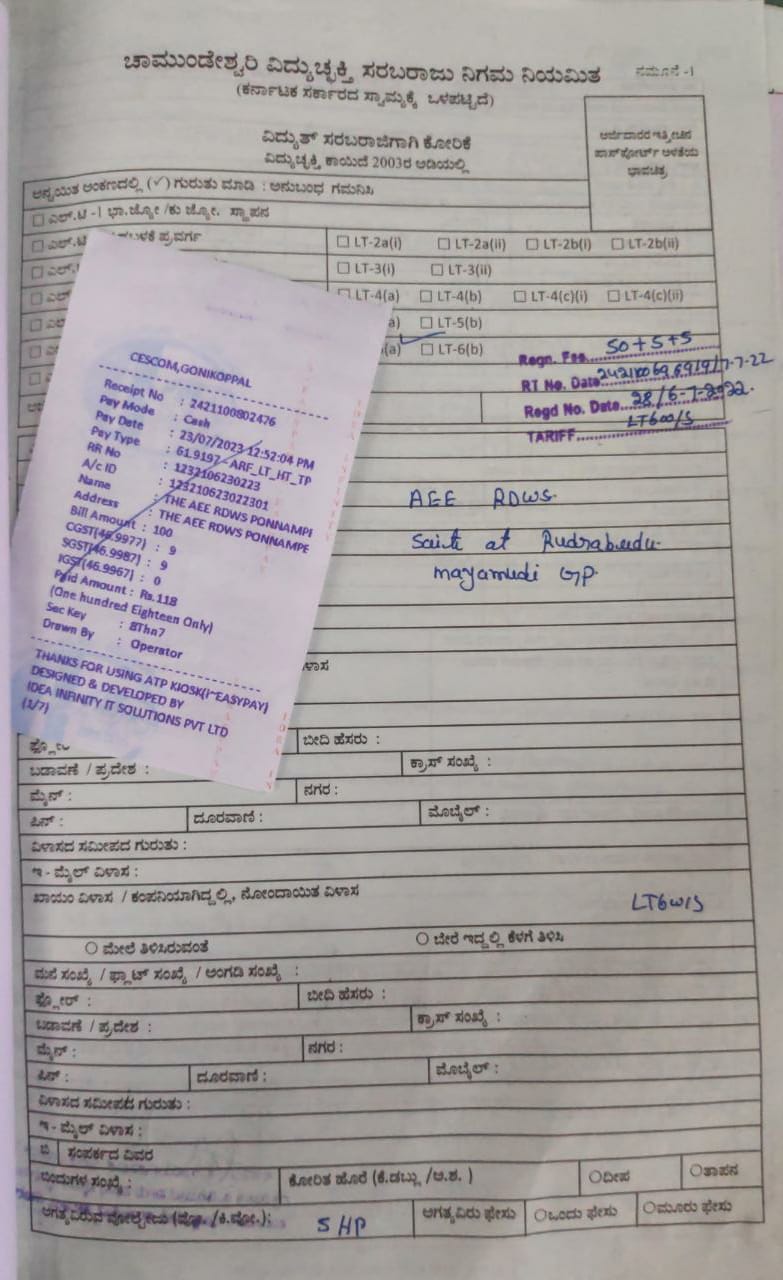 ಚಾಮುಂಡೇಶ್ವರಿ ವಿದ್ಯುಚ್ಛಕ್ತಿ ಸರಬರಾಜು ನಿಗಮ ನಿಯಮಿತ
ನಮೂನೆ -1
(ಕರ್ನಾಟಕ ಸರ್ಕಾರದ ಸ್ವಾಮ್ಯಕ್ಕೆ ಒಳಪಟ್ಟಿದೆ)
ವಿದ್ಯುತ್ ಸರಬರಾಜಿಗಾಗಿ ಕೋರಿಕೆ
ವಿದ್ಯುಚ್ಛಕ್ತಿ ಕಾಯಿದೆ 2003ರ ಅಡಿಯಲ್ಲಿ
ಅರ್ಜಿದಾರರ ಇತ್ತೀಚಿನ
ಪಾಸ್‌ಪೋರ್ಟ್ ಅಳತೆಯ
ಭಾವಚಿತ್ರ
ಅನ್ವಯಿತ ಅಂಕಣದಲ್ಲಿ (✓) ಗುರುತು ಮಾಡಿ : ಅನುಬಂಧ ಗಮನಿಸಿ
☐ ಎಲ್.ಟಿ -1 ಭಾ.ಜ್ಯೋ /ಕು ಜ್ಯೋ. ಸ್ಥಾಪನ
☐ ಎಲ್.ಟಿ ಬಳಕೆ ಪ್ರವರ್ಗ ☐ LT-2a(i) ☐ LT-2a(ii) ☐ LT-2b(i) ☐ LT-2b(ii)
☐ LT-3(i) ☐ LT-3(ii)
☐ LT-4(a) ☐ LT-4(b) ☐ LT-4(c)(i) ☐ LT-4(c)(ii)
a) ☐ LT-5(b)
(a) ☐ LT-6(b)
Regn. Fee 50+5+5
RT No. Date 7-7-22
Regd No. Date 28/6-7-2022
TARIFF
CESCOM,GONIKOPPAL
Receipt No : 2421100802476
Pay Mode : Cash
Pay Date : 23/07/2023 12:52:04 PM
Pay Type : 61.9197 - ARF_LT_HT_TP
RR No : 1232106230223
A/c ID : 123210623022301
Name : THE AEE RDWS PONNAMPI
Address : THE AEE RDWS PONNAMPE
Bill Amount : 100
CGST(46.9977) : 9
SGST(46.9987) : 9
IGST(46.9967) : 0
Paid Amount : Rs.118
(One hundred Eighteen Only)
Sec Key : 8Thn7
Drawn By : Operator
THANKS FOR USING ATP KIOSK(i~EASYPAY)
DESIGNED & DEVELOPED BY
IDEA INFINITY IT SOLUTIONS PVT LTD
(1/7)
AEE RDWS
at Rudrabeedu
mayamudi GP.
ಬೀದಿ ಹೆಸರು :
ಬಡಾವಣೆ / ಪ್ರದೇಶ : ಕ್ರಾಸ್ ಸಂಖ್ಯೆ :
ಮೈನ್ : ನಗರ :
ಪಿನ್ : ದೂರವಾಣಿ : ಮೊಬೈಲ್ :
ವಿಳಾಸದ ಸಮೀಪದ ಗುರುತು :
ಇ - ಮೈಲ್ ವಿಳಾಸ :
ಖಾಯಂ ವಿಳಾಸ / ಕಂಪನಿಯಾಗಿದ್ದಲ್ಲಿ, ನೋಂದಾಯಿತ ವಿಳಾಸ
○ ಮೇಲೆ ತಿಳಿಸಿರುವಂತೆ ○ ಬೇರೆ ಇದ್ದಲ್ಲಿ ಕೆಳಗೆ ತಿಳಿಸಿ
ಮನೆ ಸಂಖ್ಯೆ / ಫ್ಲಾಟ್ ಸಂಖ್ಯೆ / ಅಂಗಡಿ ಸಂಖ್ಯೆ :
ಫ್ಲೋರ್ : ಬೀದಿ ಹೆಸರು :
ಬಡಾವಣೆ / ಪ್ರದೇಶ : ಕ್ರಾಸ್ ಸಂಖ್ಯೆ :
ಮೈನ್ : ನಗರ :
ಪಿನ್ : ದೂರವಾಣಿ : ಮೊಬೈಲ್ :
ವಿಳಾಸದ ಸಮೀಪದ ಗುರುತು :
ಇ - ಮೈಲ್ ವಿಳಾಸ :
ಬಿ ಸಂಪರ್ಕದ ವಿವರ
ಬಿಂದುಗಳ ಸಂಖ್ಯೆ : ಕೋರಿತ ಹೊರೆ (ಕಿ.ಡಬ್ಲು /ಅ.ಶ. ) ○ದೀಪ ○ತಾಪನ
ಅಗತ್ಯವಿರುವ ವೋಲ್ಟೇಜು (ವೋ. /ಕಿ.ವೋ.); 5 HP ಅಗತ್ಯವಿರು ಫೇಸು ○ಒಂದು ಫೇಸು ○ಮೂರು ಫೇಸು